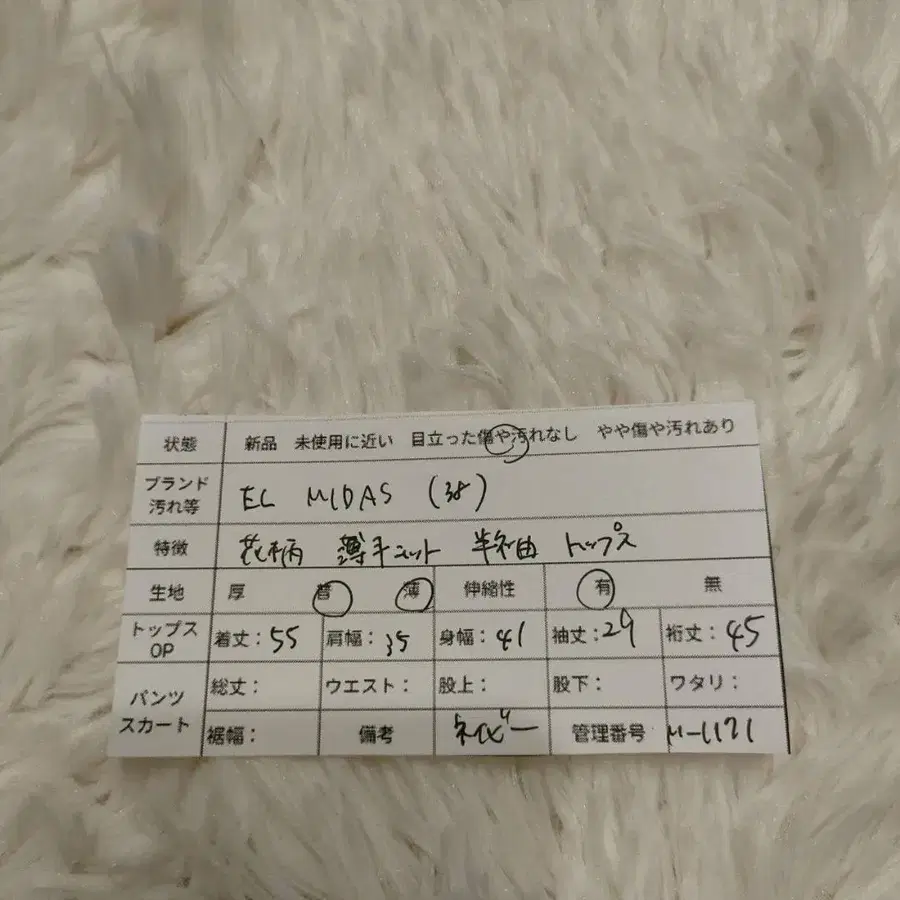 状態 新品 未使用に近い 目立った傷や汚れなし やや傷や汚れあり
ブランド
汚れ等 EL MIDAS (38)
特徴 花柄 薄手ニット 半袖 トップス
生地 厚 普 薄 伸縮性 有 無
トップス
OP 着丈:55 肩幅:35 身幅:41 袖丈:29 裄丈:45
パンツ
スカート 総丈: ウエスト: 股上: 股下: ワタリ:
裾幅: 備考 ネイビー 管理番号